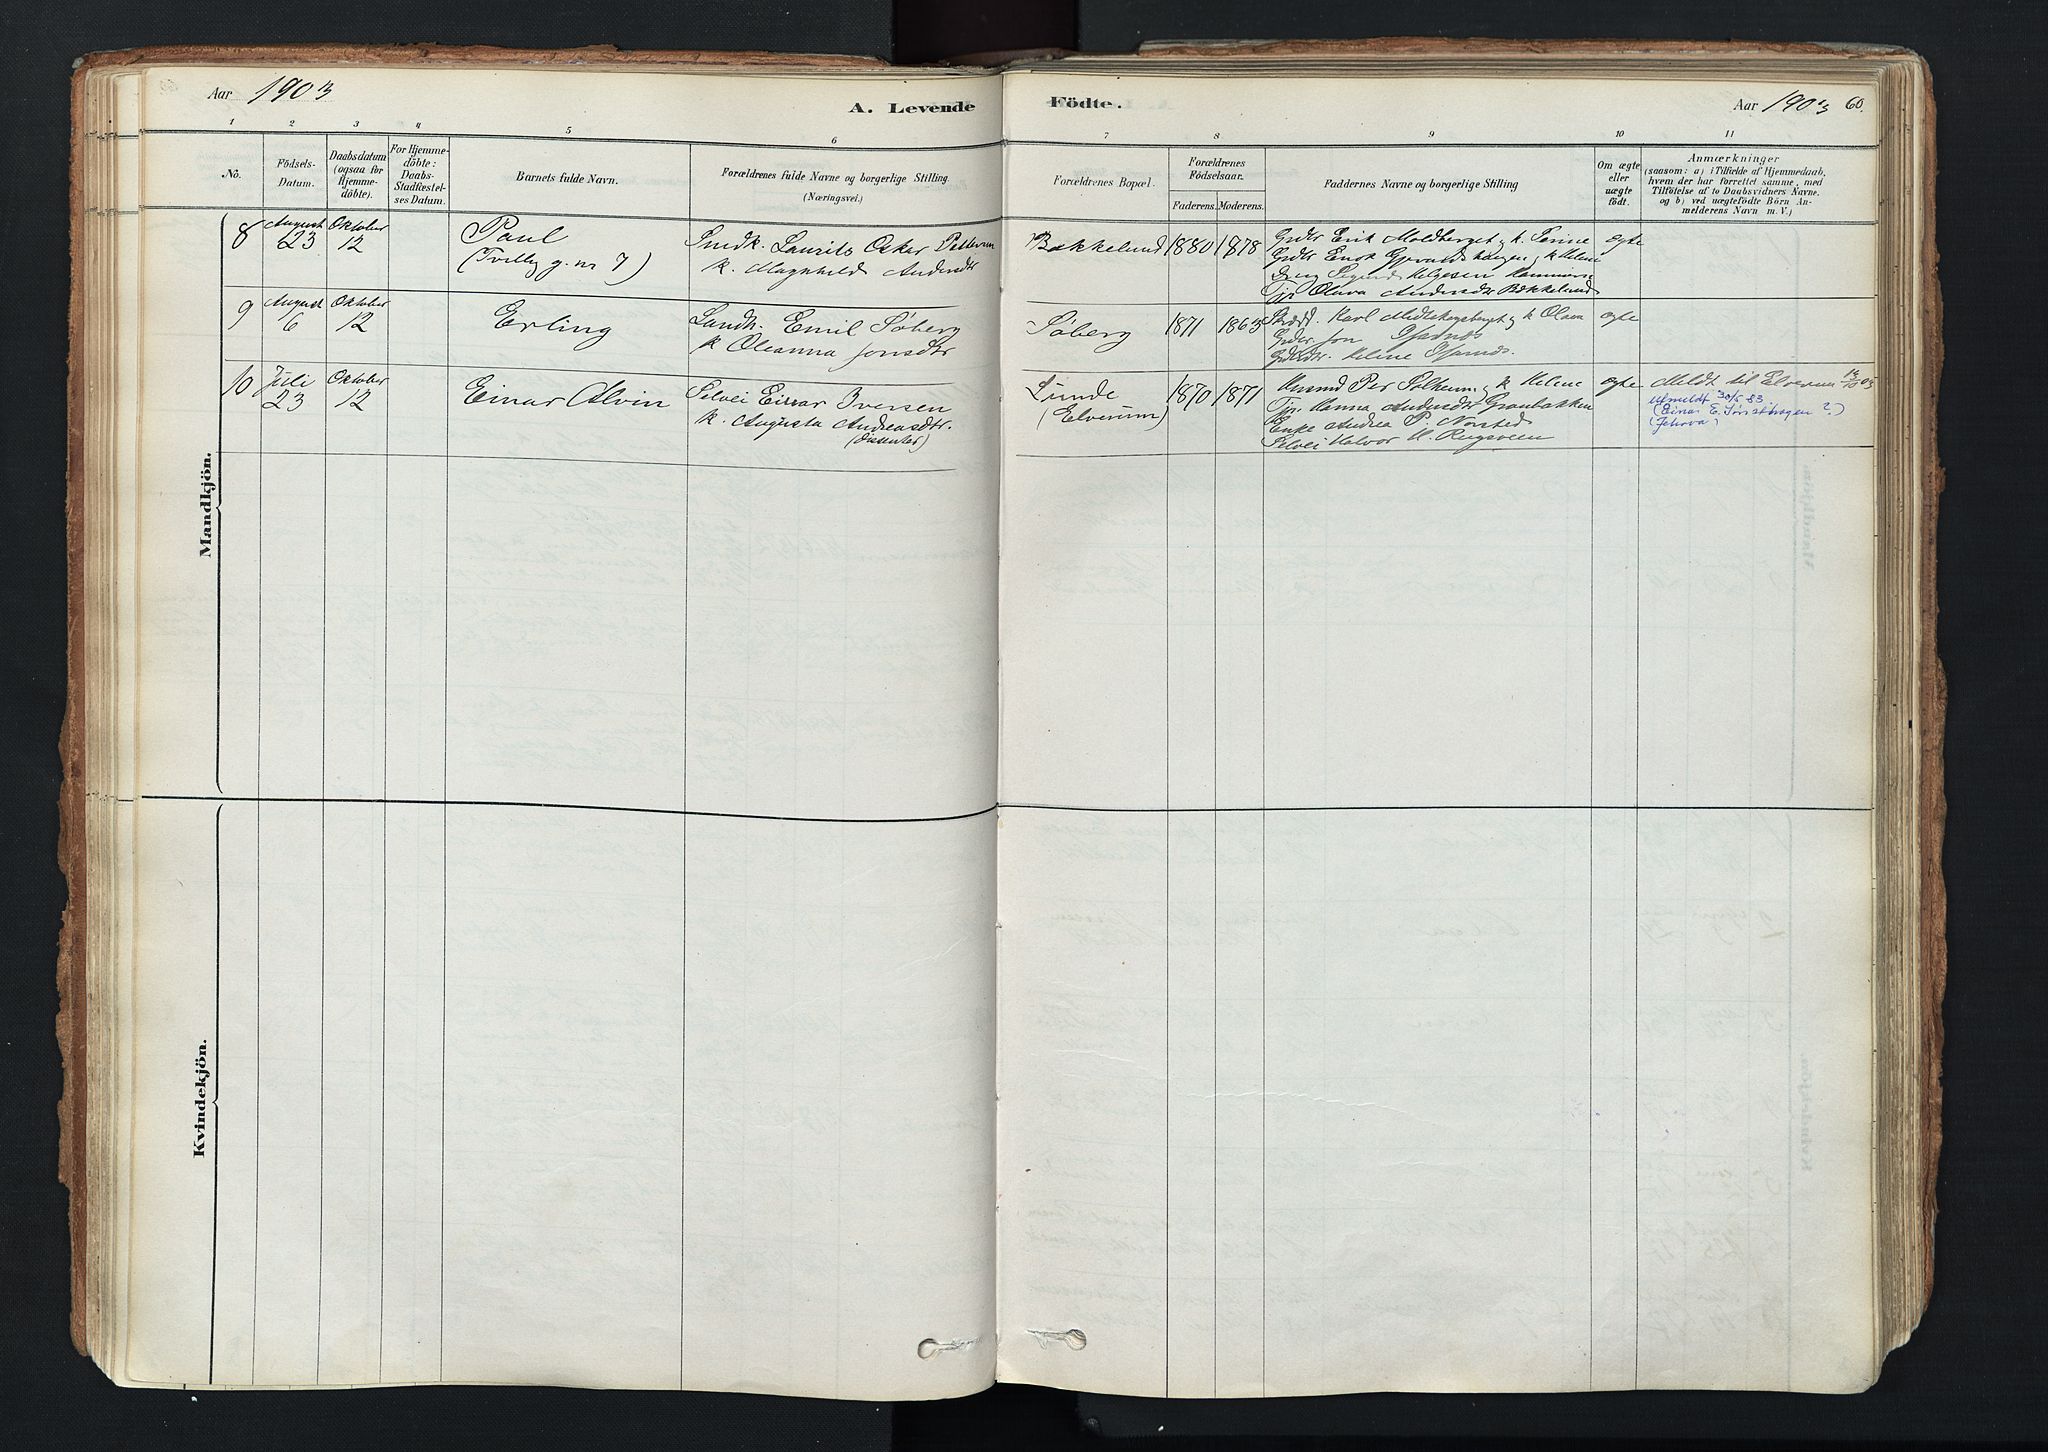 Aar 1903
A. Levende
Födte.
Aar 1903 60.
1 2 3 4 5 6 7 8 9 10 11
No.
Födsels-
Datum.
Daabsdatum
(ogsaa for
Hjemme-
döbte).
For Hjemme-
döbte:
Daabs-
Stadfæstel-
ses Datum.
Barnets fulde Navn.
Forældrenes fulde Navne og borgerlige Stilling
(Næringsvei.)
Forældrenes Bopæl.
Forældrenes
Födselsaar.
Faderens. Moderens.
Faddernes Navne og borgerlige Stilling
Om ægte
eller
uægte
født.
Anmærkninger
(saasom: a) i Tilfælde af Hjemmedaab,
hvem der har forrettet samme, med
Tilföielse af to Daabsvidners Navne.
og b) ved uægtefödte Börn An-
melderens Navn m. V.)
Mandkjön.
8
August
23
Oktober
12
Paul
(Tvilling g. nr 7)
Smdk. Laurits Oskar Pettersen
k. Magnhild Andersdtr
Bakkelund
1880 1878
Grdbr Erik Moldberget og k. Terine
Helgesen
Tjp. Olava Andersdtr Bakkelund
egte
9
August
6
Oktober
12
Erling
Landh. Emil Söberg
k Oleanna Jonsdtr
Söberg
1871 1863
Karl Midtskogsberget og k Olava
Grdbr. Jon
Helene
egte
10
Juli
23
Oktober
12
Einar Alvin
Selvei Einar Iversen
k. Augusta Andreasdtr.
(dissenter)
Lunde
(Elverum)
1870 1871
Per Solheim og k Helene
Tjp. Hanna Andersdtr Granbakken
Enke Andrea P. Norsted
Selvei Halvor H. Rugsveen
egte
Meldt til Elverum 13/10 03
Utmeldt 30/5 83
(Einar E. ?)
(Jehova)
Kvindekjön.